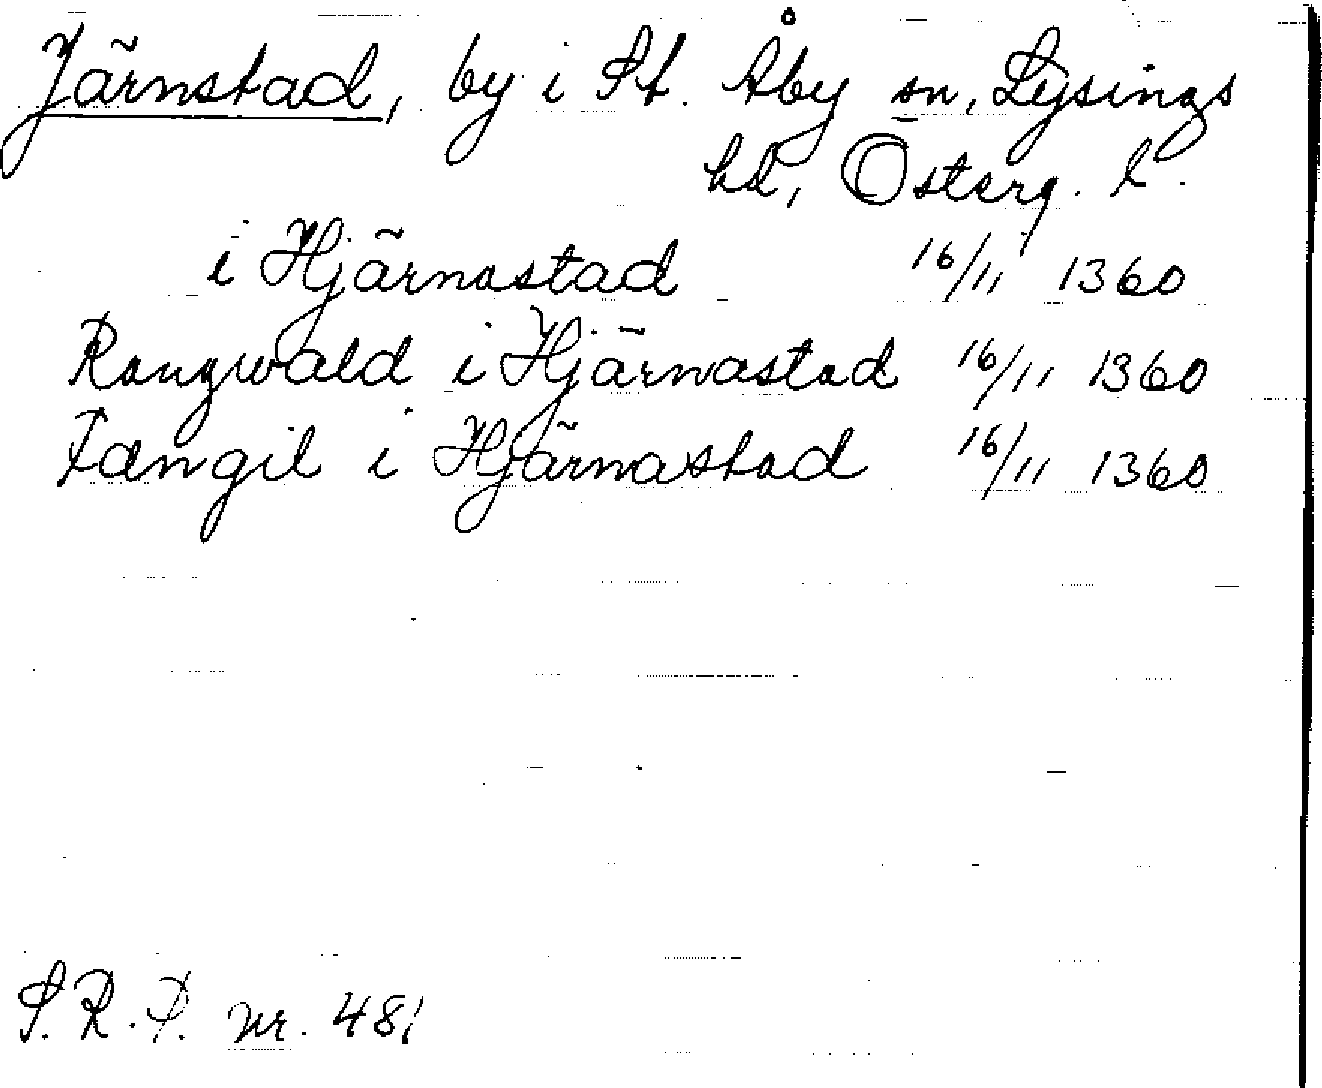 Järnstad, by i St. Åby sn, Lysings
hd, Österg. l.
i Hjärnastad 16/11 1360
Rangwald i Hjärnastad 16/11 1360
Fængil i Hjärnastad 16/11 1360
S.R.P. nr. 481